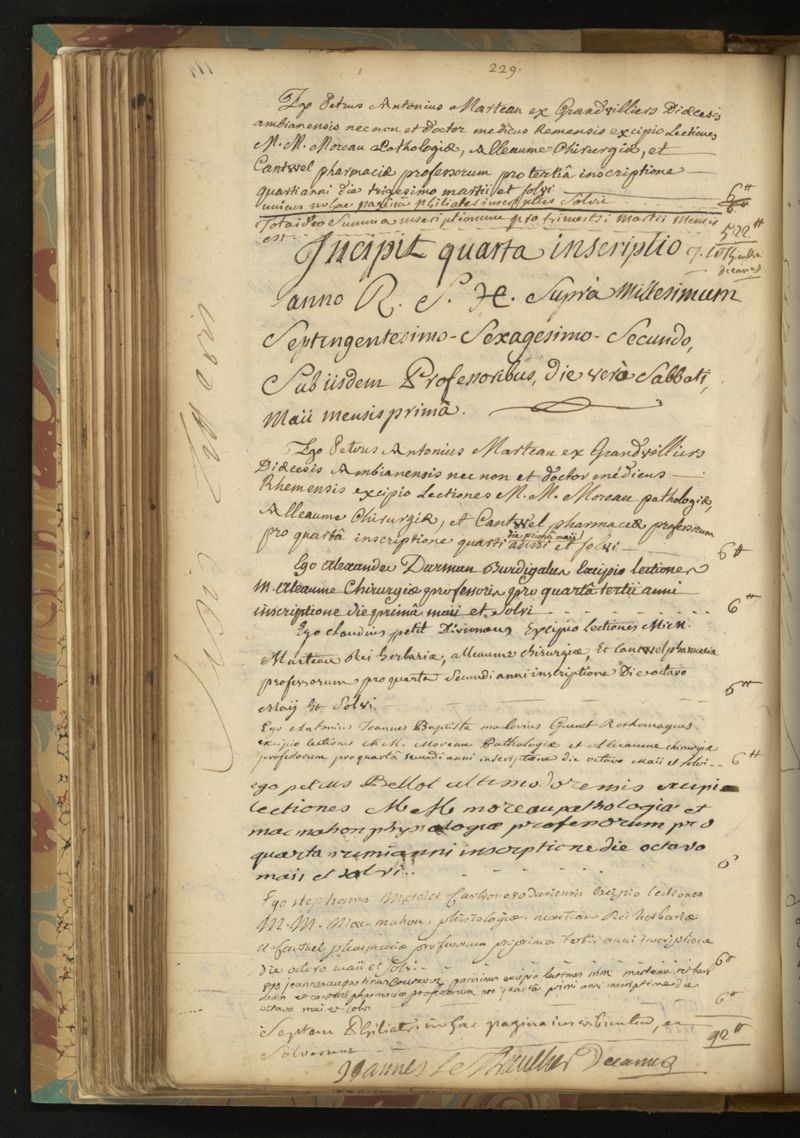 229.
Ego Petrus Antonius Marteau ex Grandvilliers Diœcesis
ambianensis necnon et doctor medicus Remensis excipio Lectiones
M. M. Moreau Pathologiæ, Alleaume Chirurgiæ, et
Cantwel pharmaciæ professorum pro tertiâ inscriptione
quarti anni die trigesimo martii et solvi 6#
unicus in hac pagina philiater inscriptus Solvit 6#
Tota ideo Summa inscriptionum pro trimestri Martii Mensis
est 522#
decanus
Incipit quarta inscriptio
anno R. S. H. Suprà Millesimum
Septingentesimo-Sexagesimo-Secundo,
Sub iisdem Professoribus, die verò Sabbati,
Maii mensis primâ.
Ego Petrus Antonius Marteau ex Grandvilliers
Diœcesis Ambianensis nec non et doctor médicus
Rhemensis excipio Lectiones M. M. Moreau pathologiæ,
Alleaume Chirurgiæ, et Cantwel pharmaciæ professorum
die primâ maii
pro quartâ inscriptione quarti anni et solvi 6#
Ego Alexander Darman Burdigalus Excipio lectiones
M. Aleaume Chirurgiæ professoris pro quartâ tertii anni
inscriptione die primâ maii et solvi 6#
Ego claudius petit Divionæus Excipio lectiones Mich.
Marteau Rei herbariæ, alleaume chirurgiæ, Et Cantwel pharmaciæ
professorum pro quarta Secundi anni inscriptione Die octavo
Maij Et Solvi 6#
Ego Antonius Joannes Baptista maclovius Guenet Rothomagæus
excipio lectiones M. M. Moreau Pathologiæ et Alleaume chirurgiæ
professorum pro quartâ secundi anni inscriptione die octavo Maii et solvi 6#
ego petrus Bellot excipio
lectiones M M moreau pathologiæ et
macmahon physiologiæ professorum pro
quarta primi anni inscriptione die octavo
maii et solvi 6
Ego stephanus Mercier Excipio lectiones
M. M. Mac-mahon, phisiologiæ, marteau Rei herbariæ
et Cantuel pharmaciæ professorum pro prima tertii anni inscriptione
die octavo maii et solvi 6#
Ego joannes augustinus parisinus excipio lectiones marteau rei
et cantwel pharmaciæ professorum pro quartâ primi anni inscriptione die
octavo maii et solvi 6#
Septem Philiatri in hac pagina inscribuntur, et
Solverunt 42#
Joannes Le Thieullier Decanus